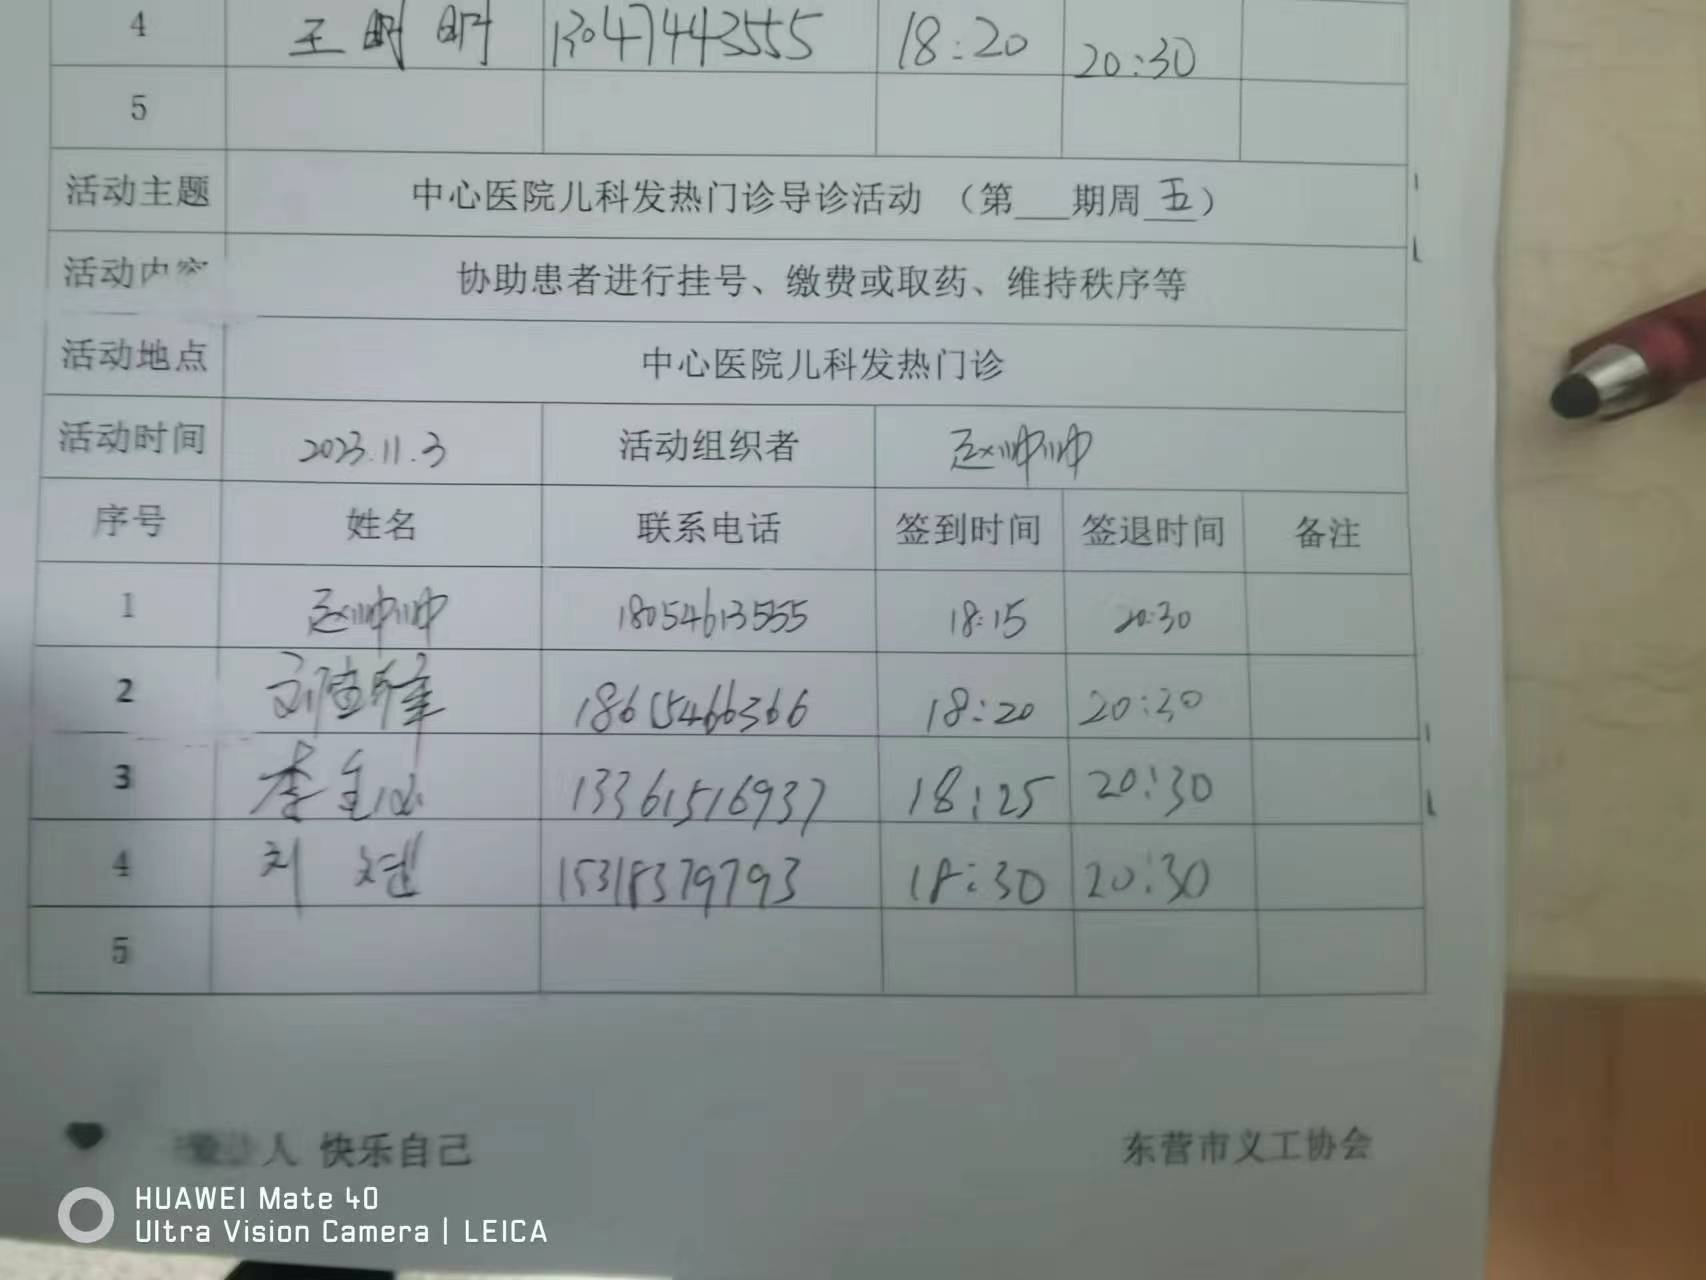 4 王明明 13047443555 18:20 20:30
5
活动主题 中心医院儿科发热门诊导诊活动 （第___期周五）
活动内容 协助患者进行挂号、缴费或取药、维持秩序等
活动地点 中心医院儿科发热门诊
活动时间 2023.11.3 活动组织者 赵帅帅
序号 姓名 联系电话 签到时间 签退时间 备注
1 赵帅帅 18054613555 18:15 20:30
2 18615466366 18:20 20:30
3 李 13361516937 18:25 20:30
4 刘 15318379793 18:30 20:30
5
人 快乐自己 东营市义工协会
HUAWEI Mate 40
Ultra Vision Camera | LEICA